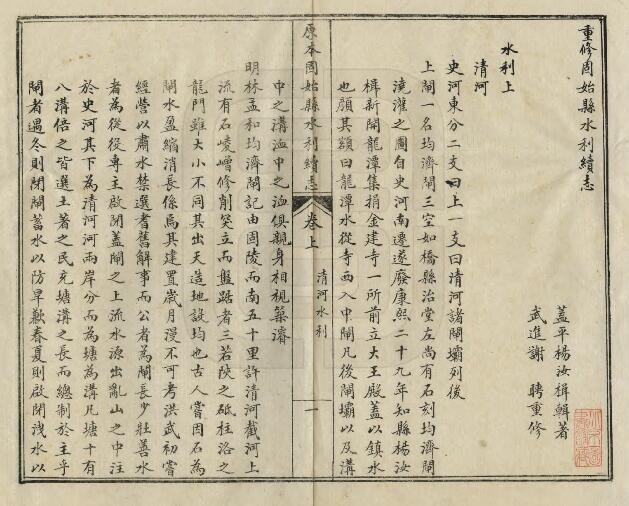 重修固始縣水利續志
蓋平楊汝楫輯著
武進謝聘重修
水利上
清河
史河東分二支曰上一支曰清河諸閘壩列後
上閘一名均濟閘三空如橋縣治堂左尚有石刻均濟閘
澆灌之圖自史河南遷遂廢康熙二十九年知縣楊汝
楫新開龍潭集捐金建寺一所前立大王殿蓋以鎮水
也顏其額曰龍潭水從寺西入中閘凡後閘壩以及溝
原本固始縣水利續志
卷上
清河水利
一
中之溝洫中之洫俱親身相視築濬
明林孟和均濟閘記由固陵而南五十里許清河截河上
流有石崚嶒修削突立而盤踞者三若陝之砥柱洛之
龍門雖大小不同其出天造地設均也古人嘗因石為
閘水盈縮消長係焉其建置歲月漫不可考洪武初嘗
經營以肅水禁選耆舊解事而公者為閘長少壯善水
者為從役專主啟閉蓋閘之上流水源出亂山之中注
於史河其下為清河河兩岸分而為塘為溝凡塘十有
八溝倍之皆選土著之民充塘溝之長而總制於主乎
閘者遇冬則閉閘蓄水以防旱歉春夏則啟閉淺水以